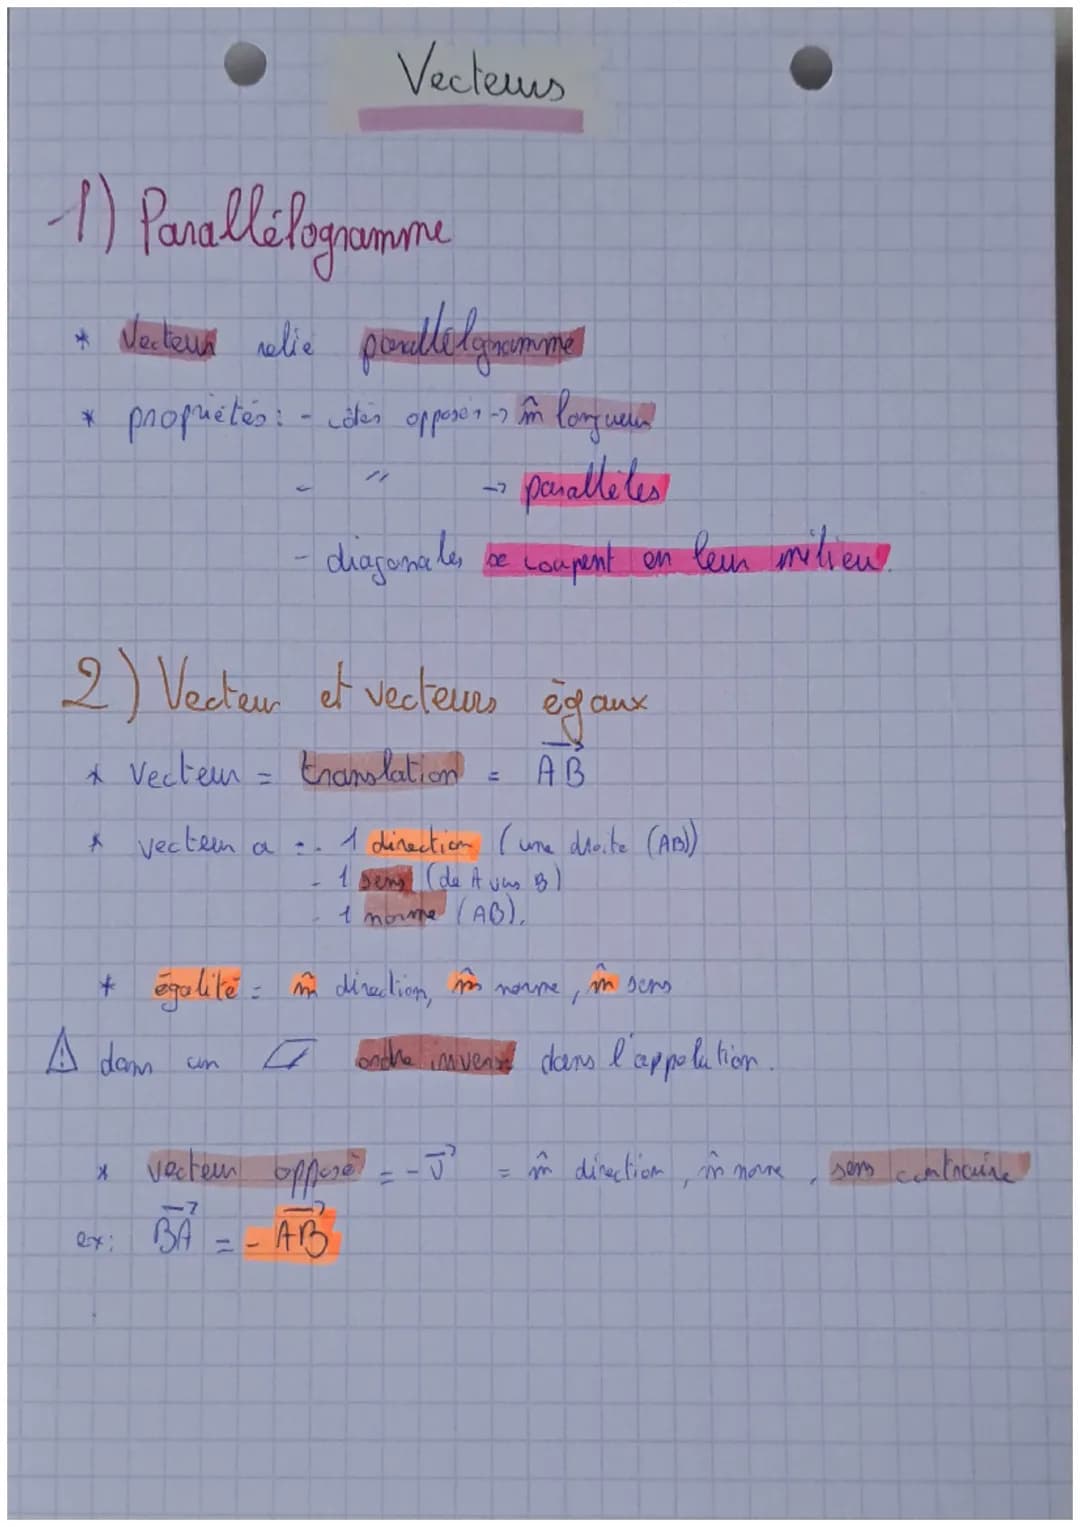 Vecteurs
1) Parallélogramme
* Vecteur relié parallélogramme
* propriétés : - côtés opposés -> m̂ longueur
- " -> parallèles
- diagonales se coupent en leur milieu.
2) Vecteur et vecteurs égaux
* Vecteur = translation = \overrightarrow{AB}
* vecteur a : - 1 direction (une droite (AB))
- 1 sens (de A vers B)
- 1 norme (AB).
* égalité = m̂ direction, m̂ norme, m̂ sens
⚠ dans un ▱ ordre inverse dans l'appelation.
* vecteur opposé = - \vec{U} = m̂ direction, m̂ norme, sens contraire
ex: \overrightarrow{BA} = - \overrightarrow{AB}